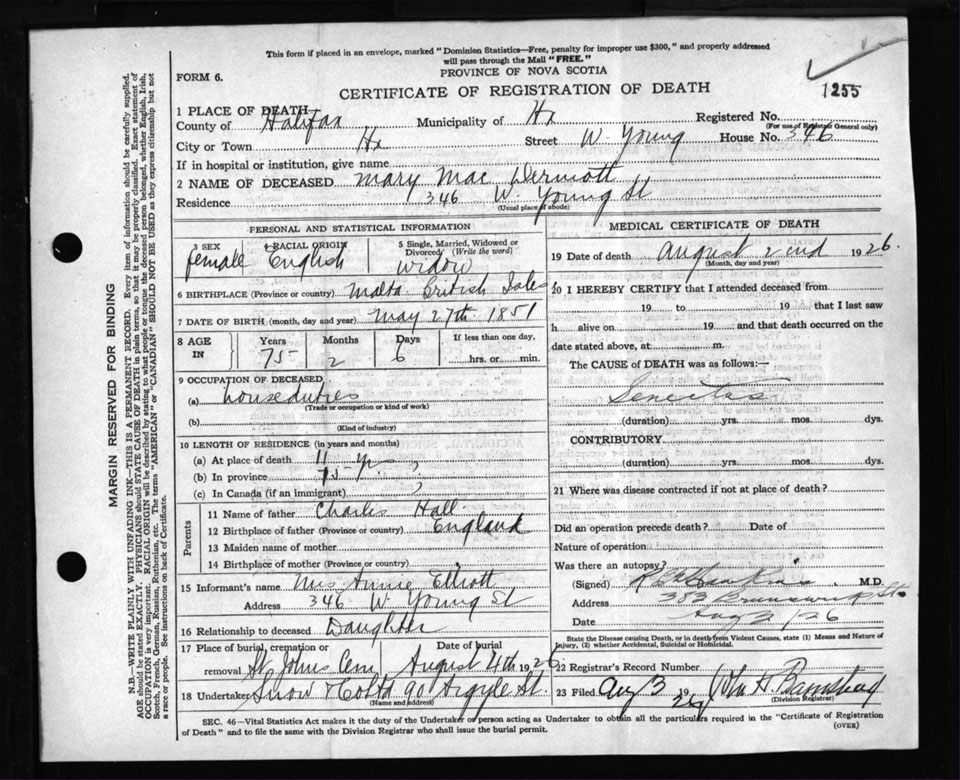 This form if placed in an envelope, marked "Dominion Statistics—Free, penalty for improper use $300," and properly addressed
will pass through the Mail "FREE."
PROVINCE OF NOVA SCOTIA
FORM 6.
CERTIFICATE OF REGISTRATION OF DEATH
1255
1 PLACE OF DEATH
County of Halifax Municipality of Hx Registered No.
(For use of Registrar General only)
City or Town Hx Street W. Young House No. 346
If in hospital or institution, give name
2 NAME OF DECEASED Mary Mac Dermott
Residence 346 W. Young St
(Usual place of abode)
PERSONAL AND STATISTICAL INFORMATION
3 SEX female
4 RACIAL ORIGIN English
5 Single, Married, Widowed or Divorced (Write the word) widow
6 BIRTHPLACE (Province or country) Malta British Isles
7 DATE OF BIRTH (month, day and year) May 27th 1851
8 AGE IN Years 75 Months 2 Days 6 If less than one day, hrs. or min.
9 OCCUPATION OF DECEASED
(a) house duties
(Trade or occupation or kind of work)
(b)
(Kind of industry)
10 LENGTH OF RESIDENCE (in years and months)
(a) At place of death 11 yr
(b) In province 75
(c) In Canada (if an immigrant)
Parents
11 Name of father Charles Hall
12 Birthplace of father (Province or country) England
13 Maiden name of mother
14 Birthplace of mother (Province or Country)
15 Informant's name Mrs Annie Elliott
Address 346 W Young St
16 Relationship to deceased Daughter
17 Place of burial, cremation or removal St Johns Cem Date of burial August 4th 1926
18 Undertaker Snow & 90 Argyle St.
(Name and address)
MEDICAL CERTIFICATE OF DEATH
19 Date of death August 2nd 1926
(Month, day and year)
20 I HEREBY CERTIFY that I attended deceased from
19 to 19 that I last saw
h alive on 19 and that death occurred on the
date stated above, at m.
The CAUSE of DEATH was as follows:—
(duration) yrs. mos. dys.
CONTRIBUTORY
(duration) yrs. mos. dys.
21 Where was disease contracted if not at place of death?
Did an operation precede death? Date of
Nature of operation
Was there an autopsy?
(Signed) M.D.
Address 383 Brunswick St.
Date Aug 2/26
State the Disease causing Death, or in death from Violent Causes, state (1) Means and Nature of
Injury, (2) whether Accidental, Suicidal or Homicidal.
22 Registrar's Record Number
23 Filed Aug 3 1926
(Division Registrar)
SEC. 46—Vital Statistics Act makes it the duty of the Undertaker or person acting as Undertaker to obtain all the particulars required in the "Certificate of Registration
of Death" and to file the same with the Division Registrar who shall issue the burial permit.
(OVER)
MARGIN RESERVED FOR BINDING
N.B—WRITE PLAINLY WITH UNFADING INK—THIS IS A PERMANENT RECORD. Every item of information should be carefully supplied.
AGE should be stated EXACTLY. PHYSICIANS should STATE CAUSE OF DEATH in plain terms, so that it may be properly classified. Exact statement of
OCCUPATION is very important. RACIAL ORIGIN will be described by stating to what people or tongue the deceased person belonged, whether English, Irish,
Scotch, French, German, Russian, Ruthenian, etc. The terms "AMERICAN" or "CANADIAN" SHOULD NOT BE USED as they express citizenship but not
a race or people. See instructions on back of Certificate.